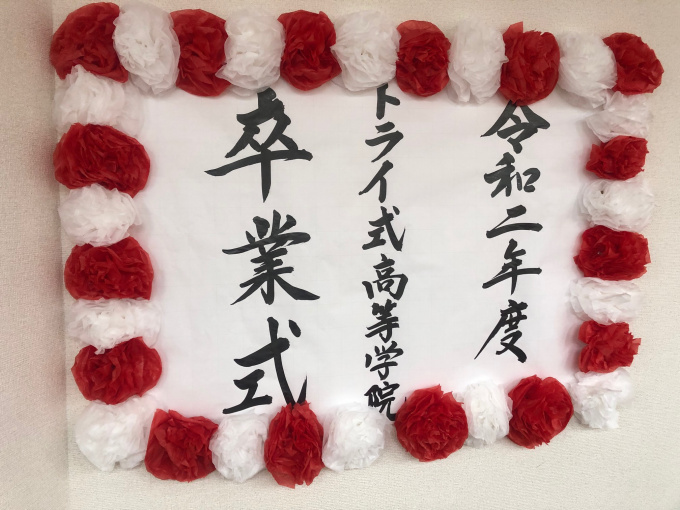 令和二年度
トライ式高等学院
卒業式